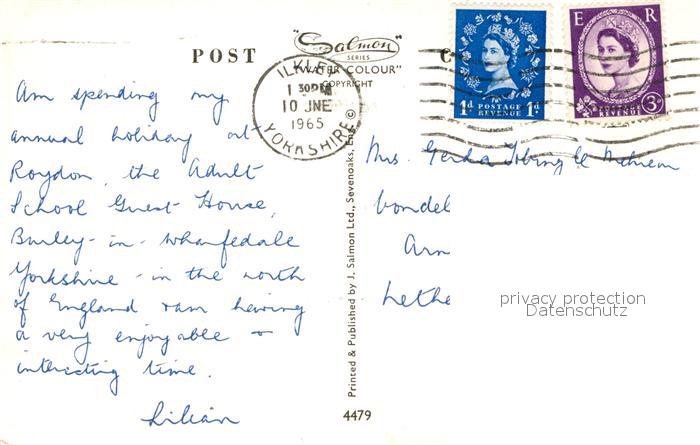 POST C
"Salmon
SERIES
"WATER COLOUR"
COPYRIGHT
ILKLEY
1 30PM
10 JNE
1965
YORKSHIRE
1d POSTAGE 1d
REVENUE
E R
REVENUE 3d
Am spending my
annual holiday at
Roydon, the Adult
School Guest House,
Burley-in-Wharfedale
Yorkshire - in the north
of England & am having
a very enjoyable &
interesting time.
Lilian
Printed & Published by J. Salmon Ltd., Sevenoaks, Eng. ©
4479
Mrs. Gerda
Vondel
Arn
Lethe
privacy protection
Datenschutz